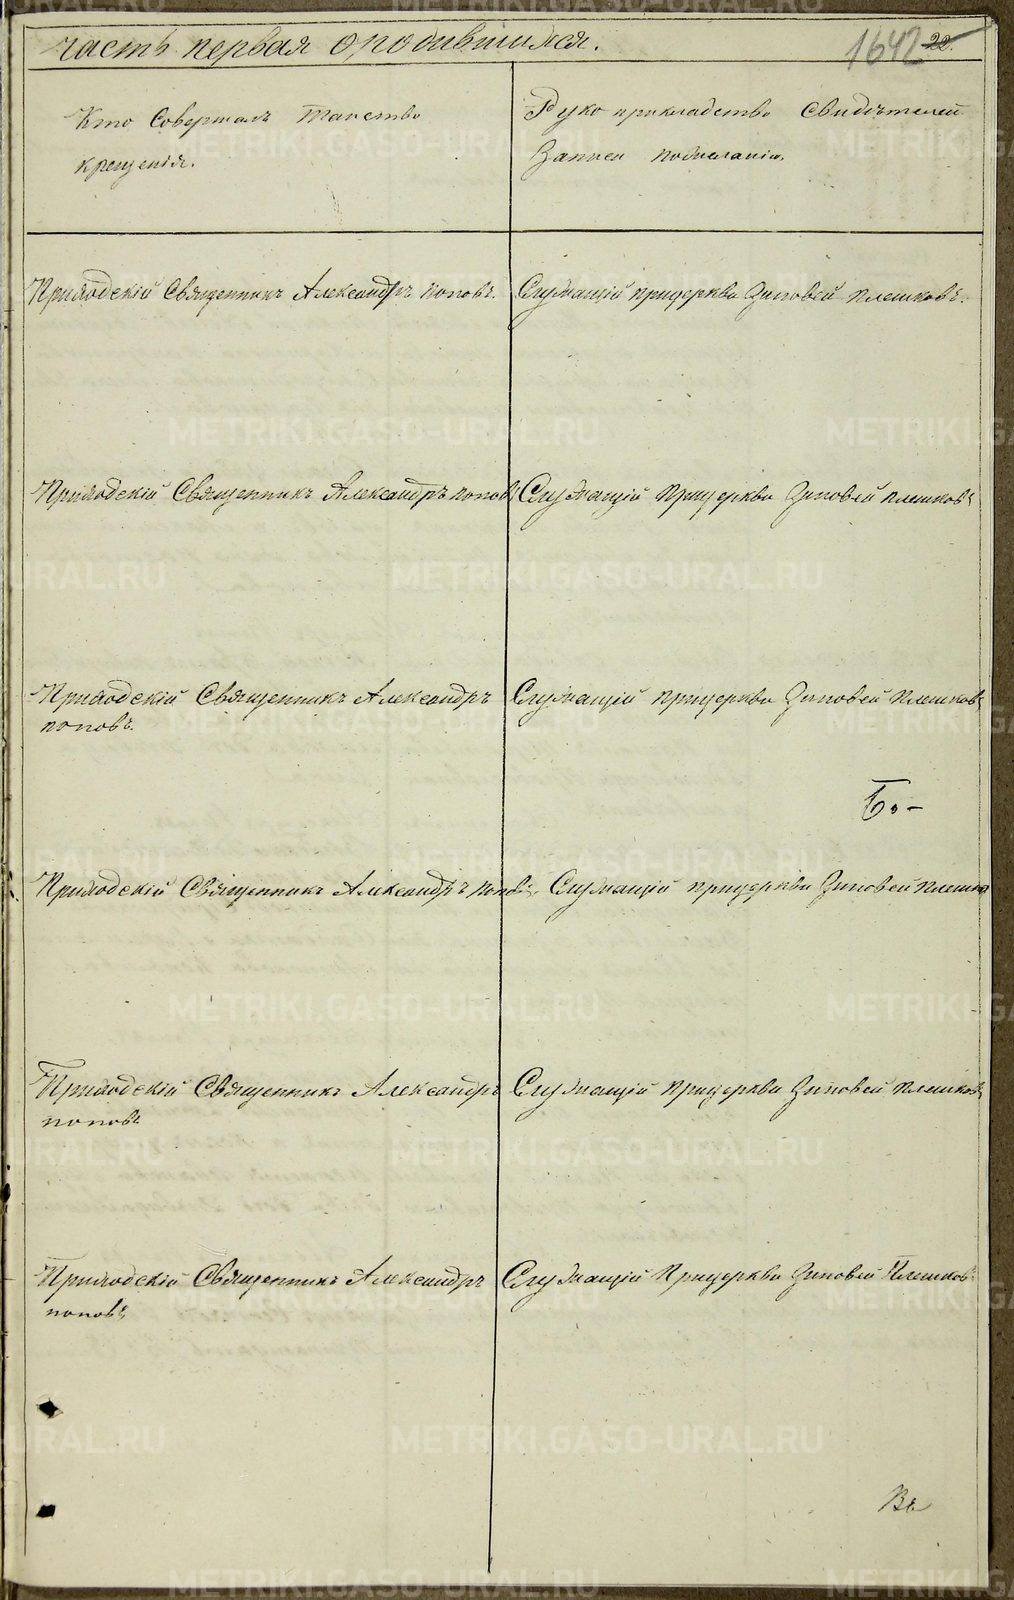 часть первая о родившихся.
1642 22.
Кто Совершалъ Таинство
крещенія.
Рукоприкладство Свидѣтелей
Записи пожеланію.
Приходскій Священникъ Александръ поповъ.
Служащій прицеркви Зиновей плешковъ.
Приходскій Священникъ Александръ поповъ
Служащій прицеркви Зиновей плешковъ
Приходскій Священникъ Александръ
поповъ.
Служащій прицеркви Зиновей плешковъ
Бо-
Приходскій Священникъ Александръ поповъ.
Служащій прицеркви Зиновей плешко
Приходскій Священникъ Александръ
поповъ
Служащій прицеркви Зиновей плешковъ
Приходскій Священникъ Александръ
поповъ
Служащій Прицеркви Зиновей Плешковъ
Въ
METRIKI.GASO-URAL.RU